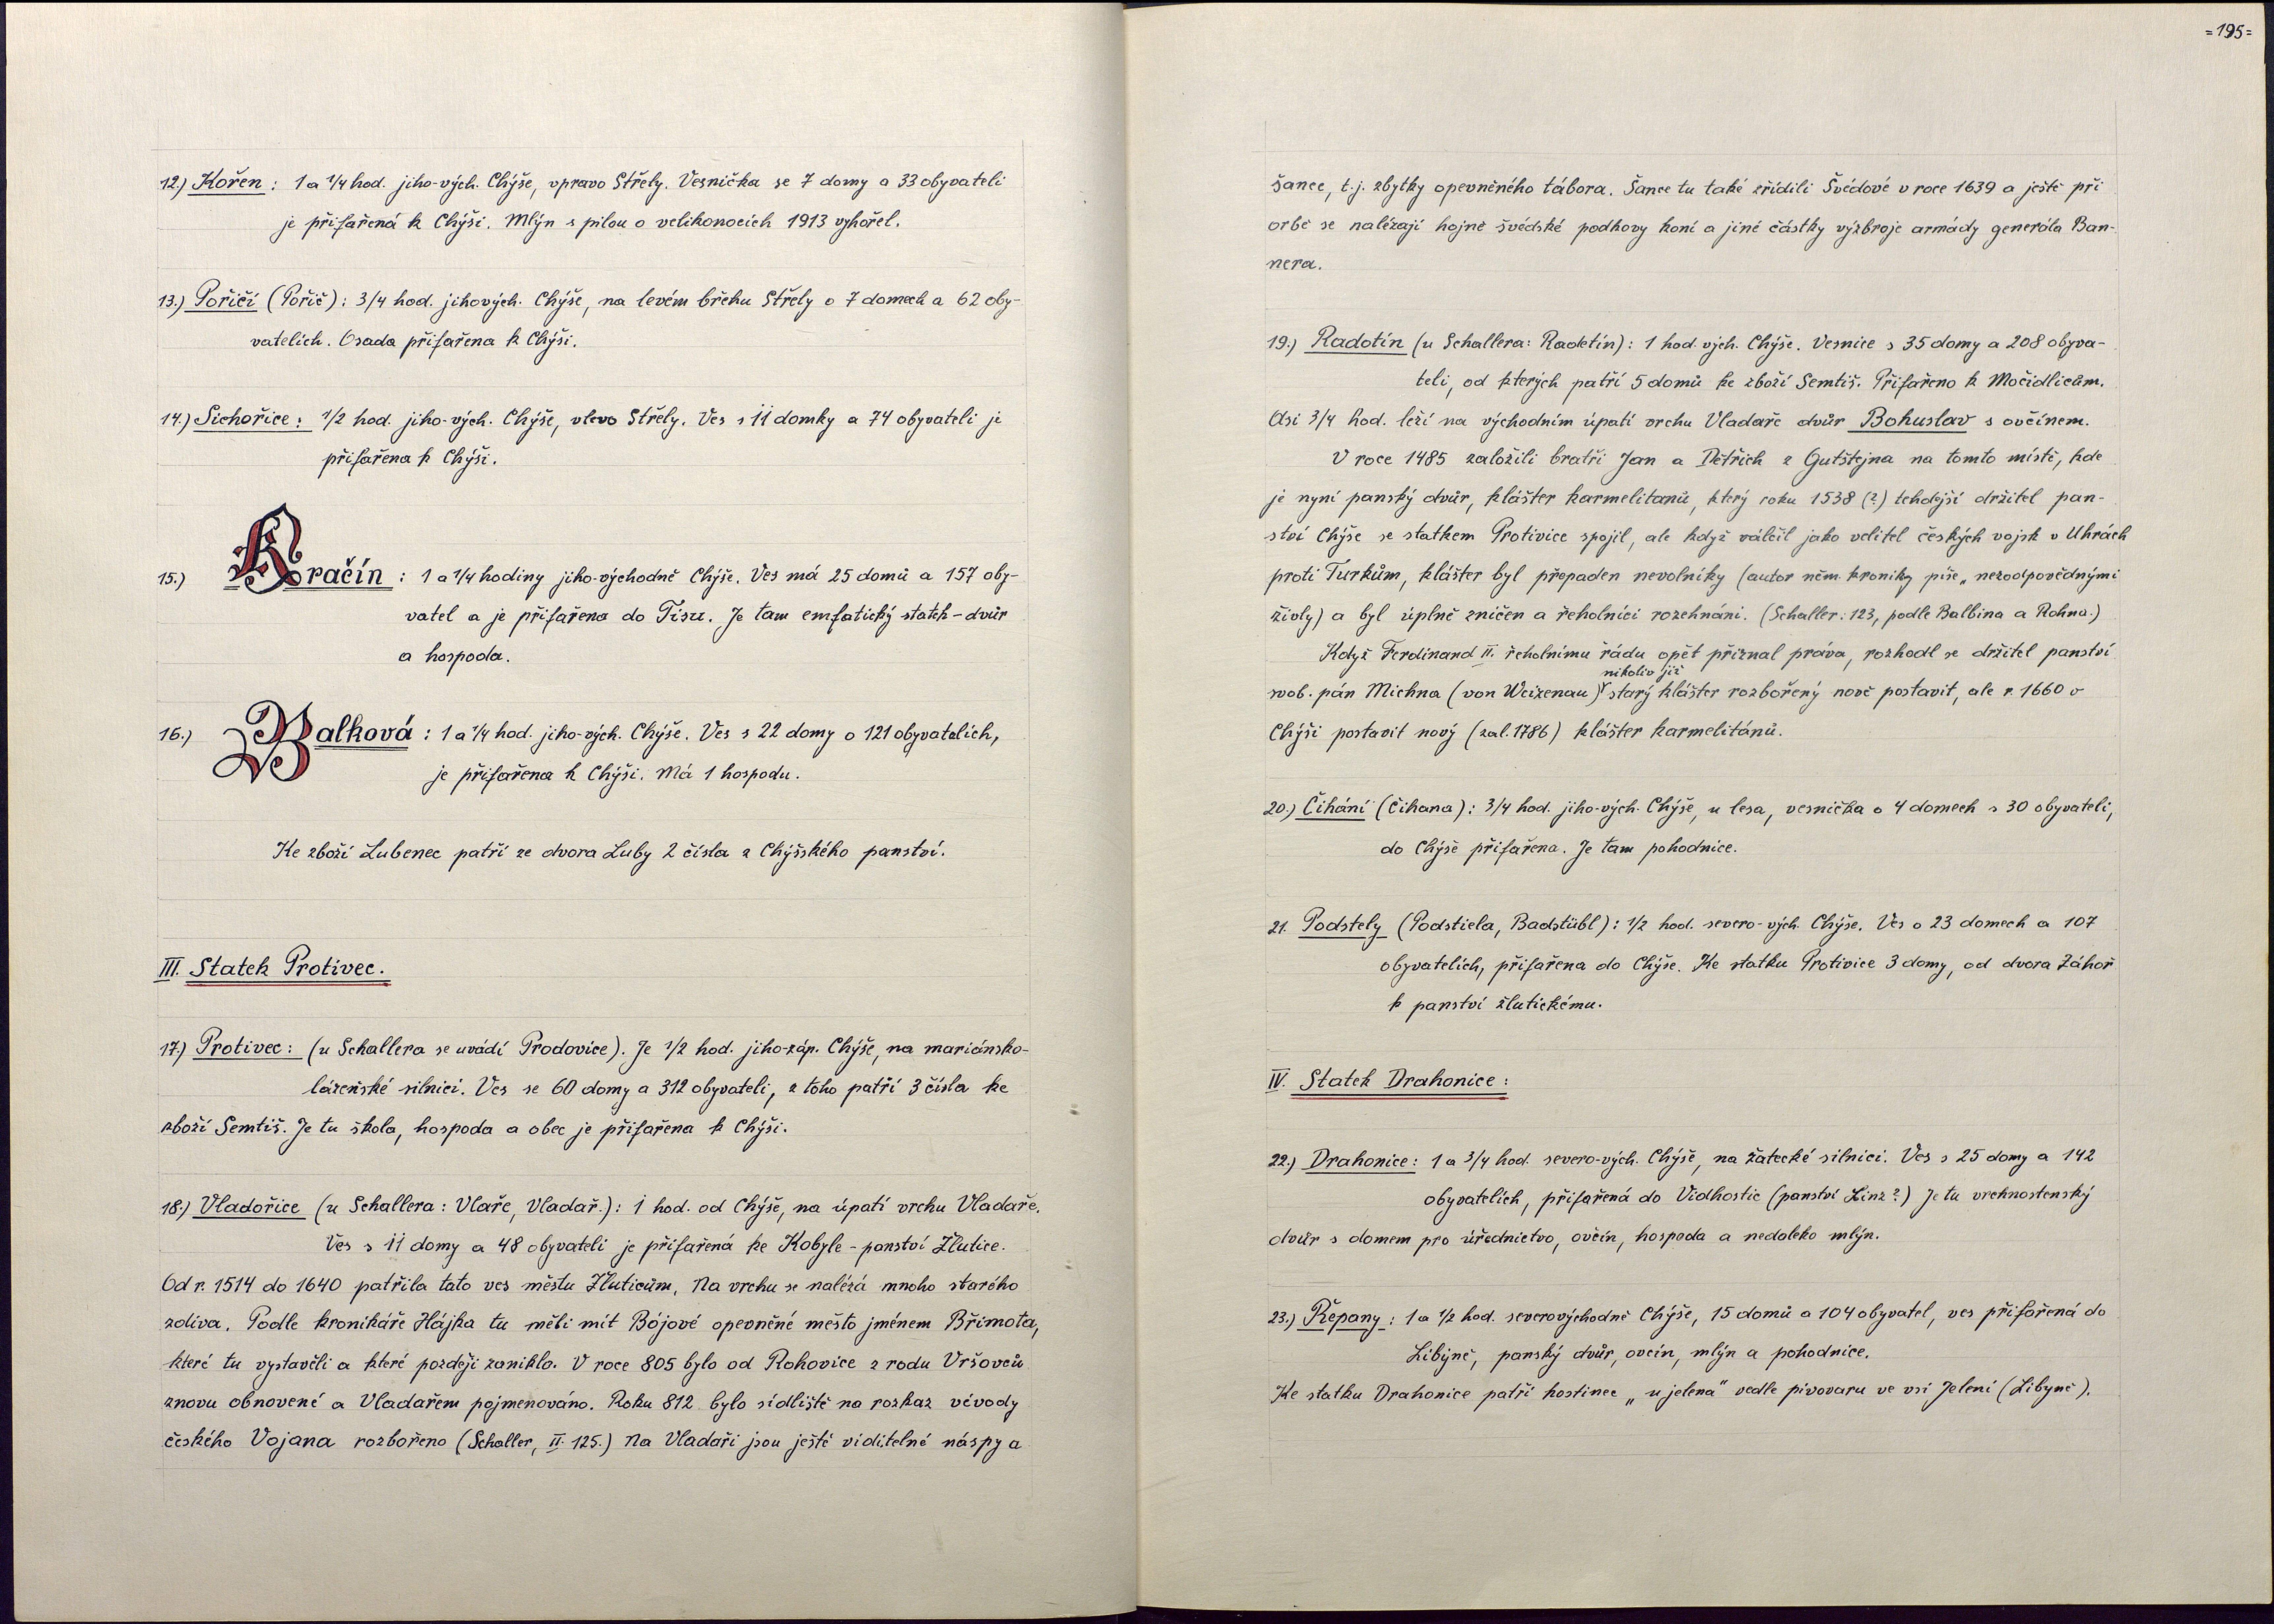 12.) Kořen : 1 a 1/4 hod. jiho-vých. Chýše, vpravo Střely. Vesnička se 7 domy a 33 obyvateli
je přifařená k Chýši. Mlýn s pilou o velikonocích 1913 vyhořel.
13.) Poříčí (Pořič) : 3/4 hod. jihových. Chýše, na levém břehu Střely o 7 domech a 62 oby-
vatelích. Osada přifařena k Chýši.
14.) Sichořice : 1/2 hod. jiho-vých. Chýše, vlevo Střely. Ves s 11 domky a 74 obyvateli je
přifařena k Chýši.
15.) Kračín : 1 a 1/4 hodiny jiho-východně Chýše. Ves má 25 domů a 157 oby-
vatel a je přifařena do Tisu. Je tam emfatický statek - dvůr
a hospoda.
16.) Balková : 1 a 1/4 hod. jiho-vých. Chýše. Ves s 22 domy o 121 obyvatelích,
je přifařena k Chýši. Má 1 hospodu.
Ke zboží Lubenec patří ze dvora Luby 2 čísla z Chýšského panství.
III. Statek Protivec.
17.) Protivec : (u Schallera se uvádí Prodovice). Je 1/2 hod. jiho-záp. Chýše, na mariánsko-
lázeňské silnici. Ves se 60 domy a 312 obyvateli, z toho patří 3 čísla ke
zboží Semtiš. Je tu škola, hospoda a obec je přifařena k Chýši.
18.) Vladořice (u Schallera : Vlaře, Vladař.) : 1 hod. od Chýše, na úpatí vrchu Vladaře.
Ves s 11 domy a 48 obyvateli je přifařená ke Kobyle - panství Žlutice.
Od r. 1514 do 1640 patřila tato ves městu Žluticům. Na vrchu se nalézá mnoho starého
zdiva. Podle kronikáře Hájka tu měli mít Bójové opevněné město jménem Břimota,
které tu vystavěli a které později zaniklo. V roce 805 bylo od Rohovice z rodu Vršovců
znovu obnovené a Vladařem pojmenováno. Roku 812 bylo sídliště na rozkaz vévody
českého Vojana rozbořeno (Schaller, II. 125.) Na Vladaři jsou ještě viditelné náspy a
=195=
šance, t.j. zbytky opevněného tábora. Šance tu také zřídili Švédové v roce 1639 a ještě při
orbě se nalézají hojně švédské podkovy koní a jiné částky výzbroje armády generála Ban-
nera.
19.) Radotín (u Schallera: Radetín) : 1 hod. vých. Chýše. Vesnice s 35 domy a 208 obyva-
teli, od kterých patří 5 domů ke zboží Semtiš. Přifařeno k Močidlicům.
Asi 3/4 hod. leží na východním úpatí vrchu Vladaře dvůr Bohuslav s ovčínem.
V roce 1485 založili bratři Jan a Dětřich z Gutštejna na tomto místě, kde
je nyní panský dvůr, klášter karmelitanů, který roku 1538 (?) tehdejší držitel pan-
ství Chýše se statkem Protivice spojil, ale když válčil jako velitel českých vojsk v Uhrách
proti Turkům, klášter byl přepaden nevolníky (autor něm. kroniky píše „nezodpovědnými
živly) a byl úplně zničen a řeholníci rozehnáni. (Schaller : 123, podle Balbina a Rohna.)
Když Ferdinand II. řeholnímu řádu opět přiznal práva, rozhodl se držitel panství
nikoliv již
svob. pán Michna (von Weizenau) starý klášter rozbořený nově postavit, ale r. 1660 v
Chýši postavit nový (zal. 1786) klášter karmelitánů.
20.) Číhání (Čihana) : 3/4 hod. jiho-vých. Chýše, u lesa, vesnička o 4 domech s 30 obyvateli,
do Chýše přifařena. Je tam pohodnice.
21. Podstely (Podstiela, Badstübl) : 1/2 hod. severo-vých. Chýše. Ves o 23 domech a 107
obyvatelích, přifařena do Chýše. Ke statku Protivice 3 domy, od dvora Záhoř
k panství žlutickému.
IV. Statek Drahonice :
22.) Drahonice : 1 a 3/4 hod. severo-vých. Chýše, na žatecké silnici. Ves s 25 domy a 142
obyvatelích, přifařená do Vidhostic (panství Linz?) Je tu vrchnostenský
dvůr s domem pro úřednictvo, ovčín, hospoda a nedaleko mlýn.
23.) Řepany : 1 a 1/2 hod. severovýchodně Chýše, 15 domů a 104 obyvatel, ves přifařená do
Libyně, panský dvůr, ovčín, mlýn a pohodnice.
Ke statku Drahonice patří hostinec „u jelena" vedle pivovaru ve vsi Jelení (Libyně).